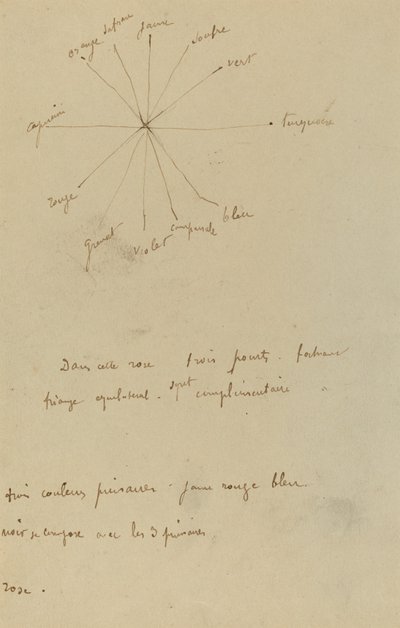 orange
safran
jaune
soufre
vert
turquoise
bleu
campanule
violet
grenat
rouge
capucine
Dans cette rose trois points formant
triangle equilateral. sont complimentaire
trois couleurs primaires - jaune rouge bleu.
noir se compose avec les 3 primaires
rose.